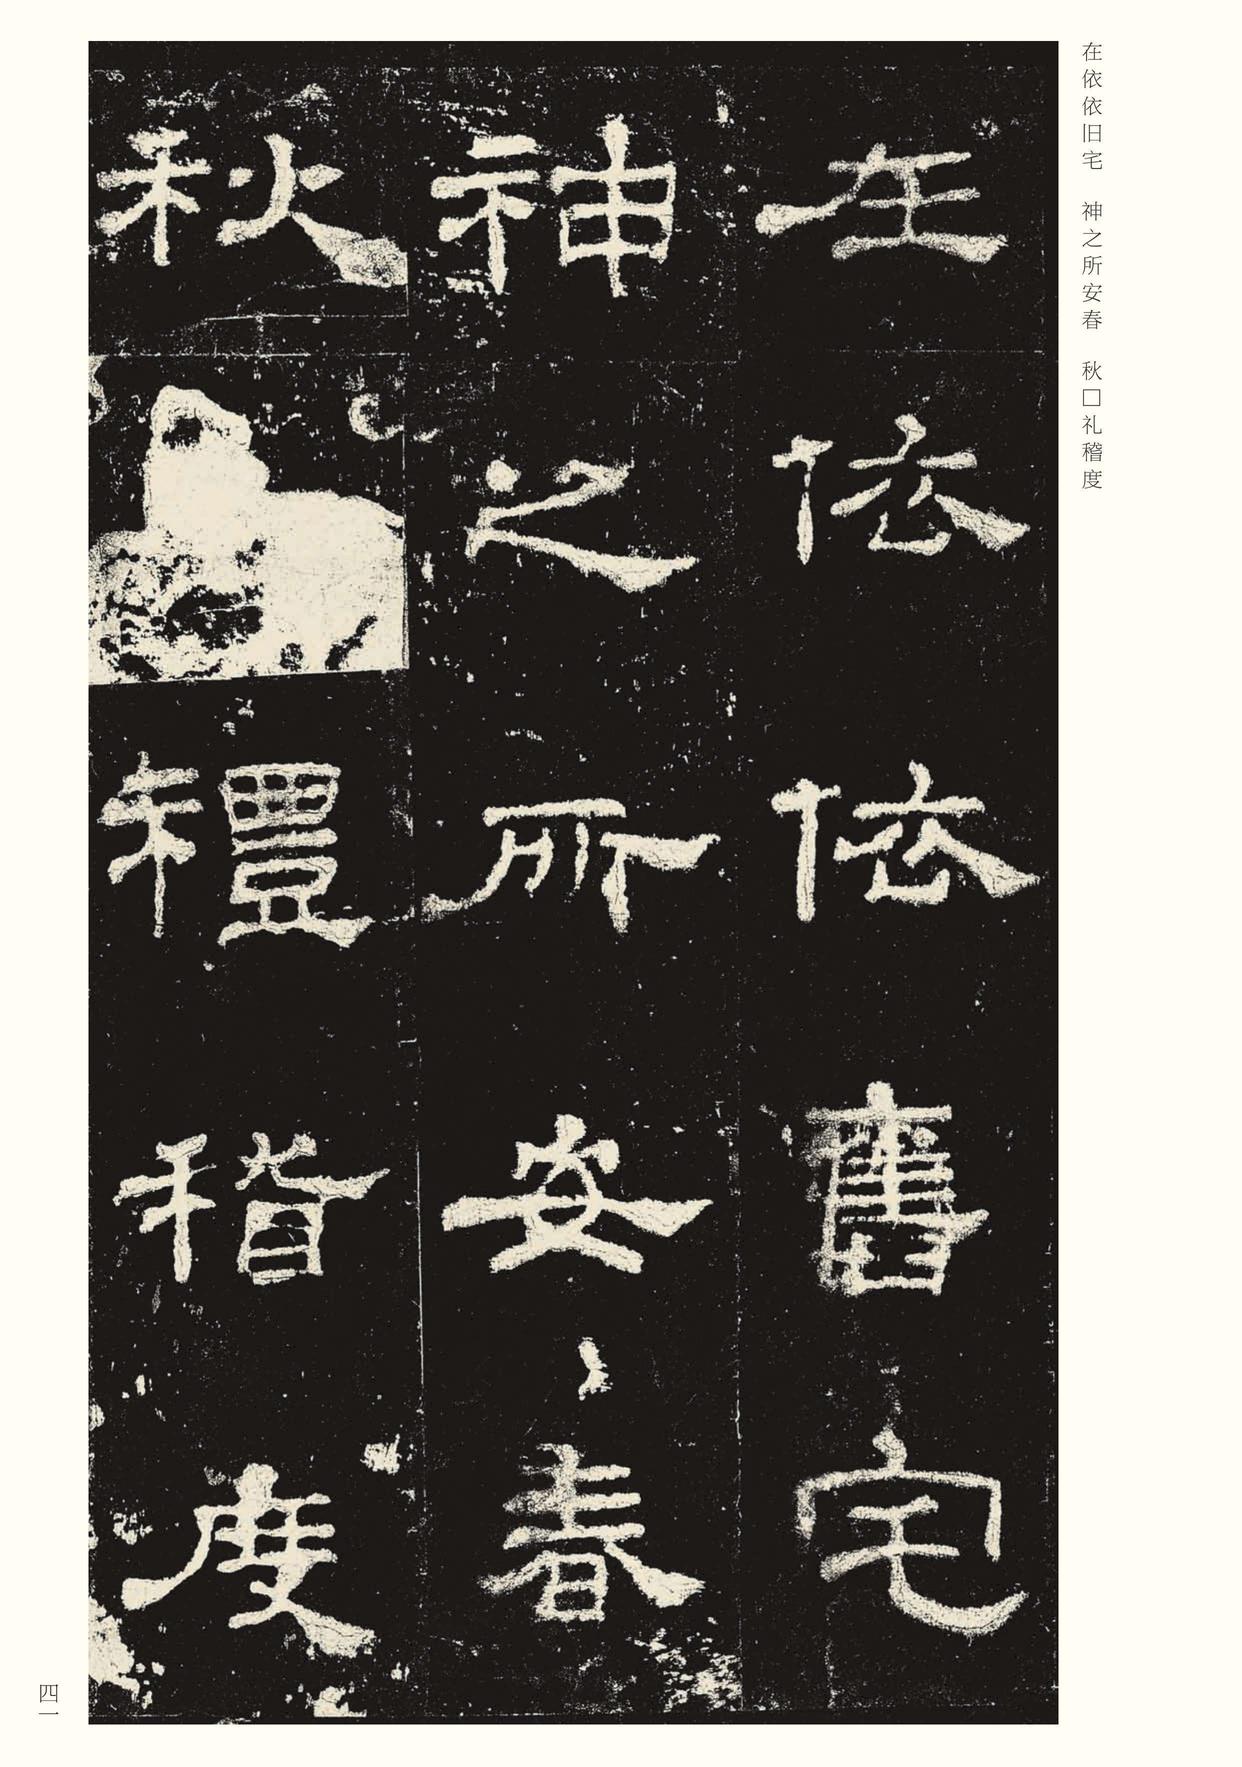 在依依旧宅　神之所安春　秋□礼稽度
在依依舊宅
神之所安春
秋禮稽度
四一